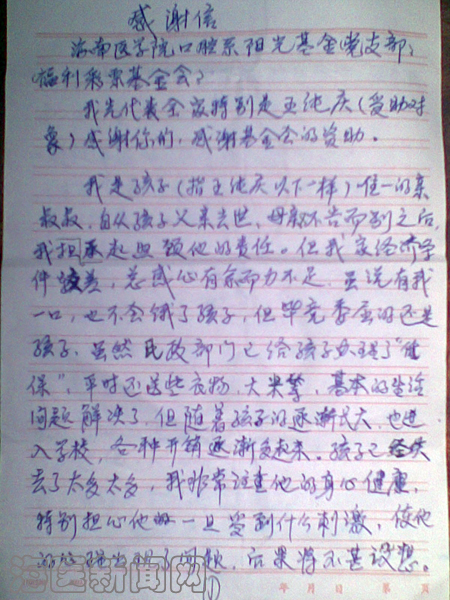 感谢信
海南医学院口腔系阳光基金党支部,
福利彩票基金会:
我先代表全家特别是王纯庆(受助对
象)感谢你们,感谢基金会的资助。
我是孩子(指王纯庆以下一样)唯一的亲
叔叔,自从孩子父亲去世,母亲不告而别之后,
我担承起照顾他的责任。但我家经济条
件较差,总感心有余而力不足,虽说有我
一口,也不会饿了孩子,但毕竟委屈的还是
孩子。虽然民政部门已给孩子办理了“低
保”,平时还送些衣物,大米等,基本的生活
问题解决了,但随着孩子的逐渐长大,也进
入学校,各种开销逐渐多起来。孩子已经失
去了太多太多,我非常注意他的身心健康,
特别担心他一旦受到什么刺激,使他
的心理出现了问题,后果将不甚设想。
年 月 日 第 页
海医新闻网